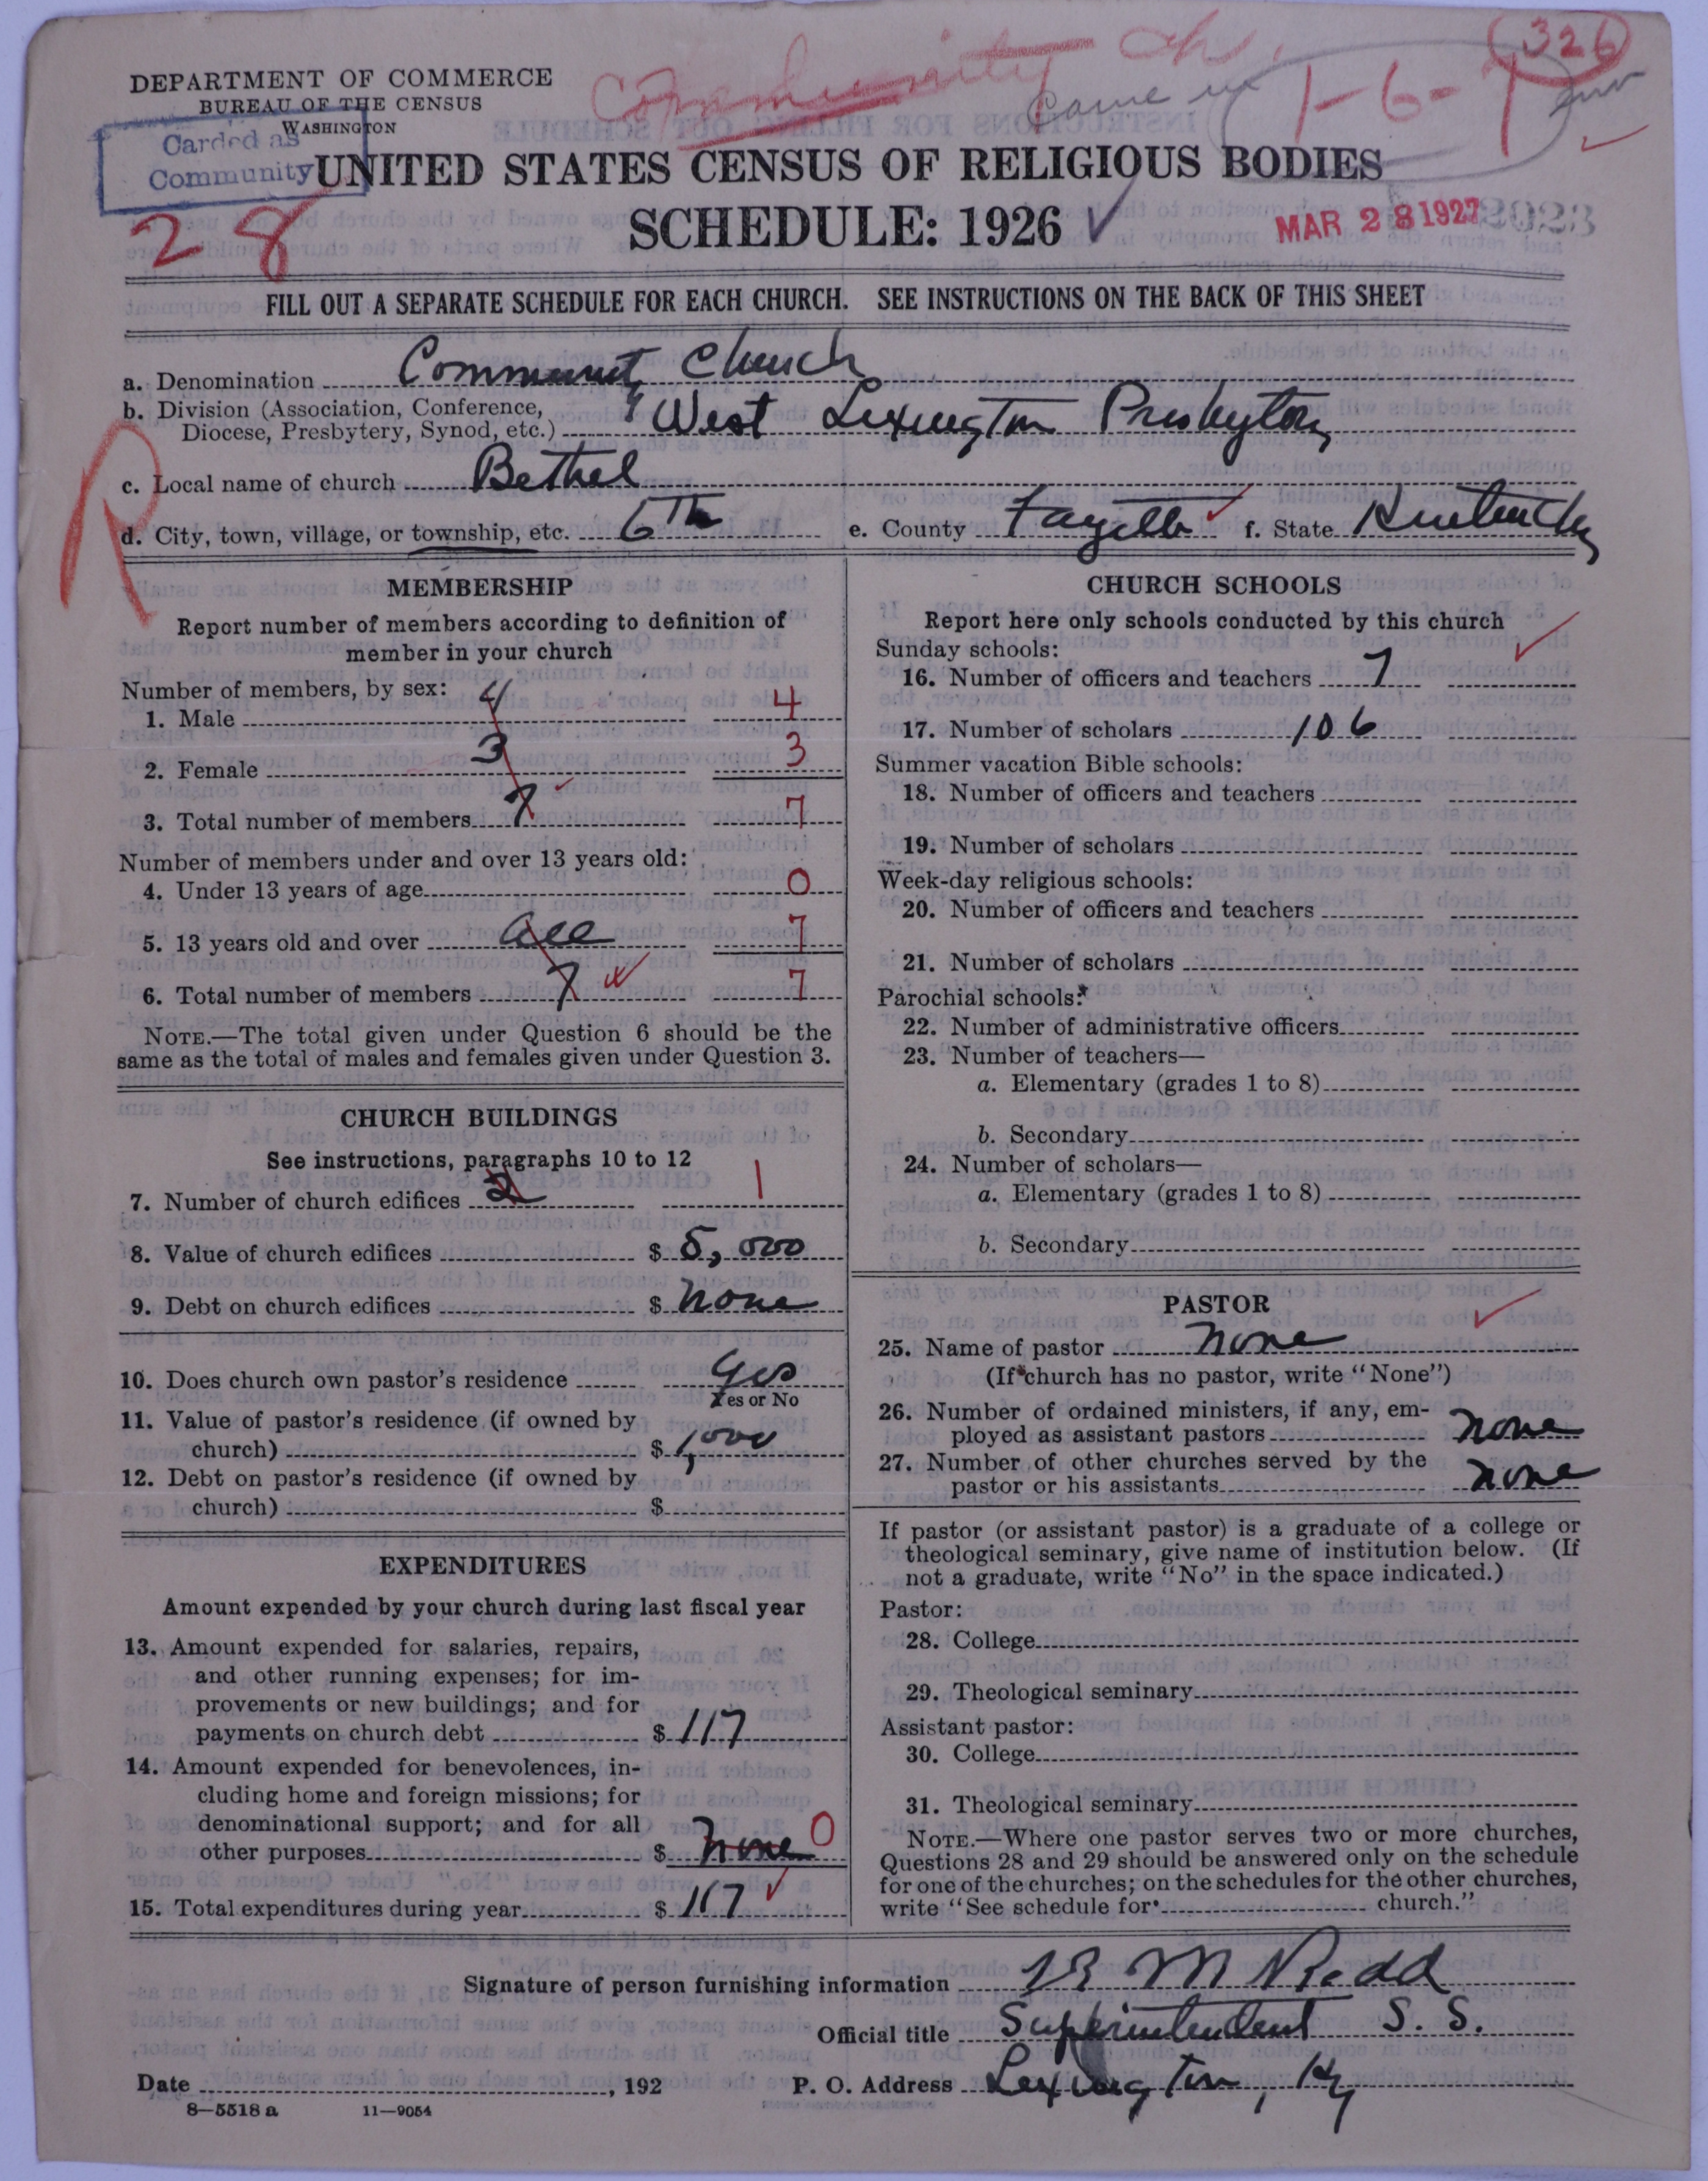 Community Ch.
326
DEPARTMENT OF COMMERCE
BUREAU OF THE CENSUS
WASHINGTON
Came in
1-6-1
Carded as
Community
UNITED STATES CENSUS OF RELIGIOUS BODIES
28
SCHEDULE: 1926
MAR 28 1927
FILL OUT A SEPARATE SCHEDULE FOR EACH CHURCH. SEE INSTRUCTIONS ON THE BACK OF THIS SHEET
a. Denomination Community Church
b. Division (Association, Conference,
Diocese, Presbytery, Synod, etc.) West Lexington Presbytery
R
c. Local name of church Bethel
d. City, town, village, or township, etc. 6th e. County Fayette f. State Kentucky
MEMBERSHIP
Report number of members according to definition of
member in your church
Number of members, by sex:
1. Male 4 4
2. Female 3 3
3. Total number of members 7 7
Number of members under and over 13 years old:
4. Under 13 years of age 0
5. 13 years old and over all 7
6. Total number of members 7 7
NOTE.—The total given under Question 6 should be the
same as the total of males and females given under Question 3.
CHURCH BUILDINGS
See instructions, paragraphs 10 to 12
7. Number of church edifices 2 1
8. Value of church edifices $ 5,000
9. Debt on church edifices $ None
10. Does church own pastor's residence Yes
Yes or No
11. Value of pastor's residence (if owned by
church) $ 1,000
12. Debt on pastor's residence (if owned by
church) $
EXPENDITURES
Amount expended by your church during last fiscal year
13. Amount expended for salaries, repairs,
and other running expenses; for im-
provements or new buildings; and for
payments on church debt $ 117
14. Amount expended for benevolences, in-
cluding home and foreign missions; for
denominational support; and for all
other purposes $ None 0
15. Total expenditures during year $ 117
CHURCH SCHOOLS
Report here only schools conducted by this church
Sunday schools:
16. Number of officers and teachers 7
17. Number of scholars 106
Summer vacation Bible schools:
18. Number of officers and teachers
19. Number of scholars
Week-day religious schools:
20. Number of officers and teachers
21. Number of scholars
Parochial schools:
22. Number of administrative officers
23. Number of teachers—
a. Elementary (grades 1 to 8)
b. Secondary
24. Number of scholars—
a. Elementary (grades 1 to 8)
b. Secondary
PASTOR
25. Name of pastor None
(If church has no pastor, write "None")
26. Number of ordained ministers, if any, em-
ployed as assistant pastors None
27. Number of other churches served by the
pastor or his assistants None
If pastor (or assistant pastor) is a graduate of a college or
theological seminary, give name of institution below. (If
not a graduate, write "No" in the space indicated.)
Pastor:
28. College
29. Theological seminary
Assistant pastor:
30. College
31. Theological seminary
NOTE.—Where one pastor serves two or more churches,
Questions 28 and 29 should be answered only on the schedule
for one of the churches; on the schedules for the other churches,
write "See schedule for church."
Signature of person furnishing information M Redd
Official title Superintendent S. S.
Date , 192 P. O. Address Lexington, Ky
8—5518 a 11—9054